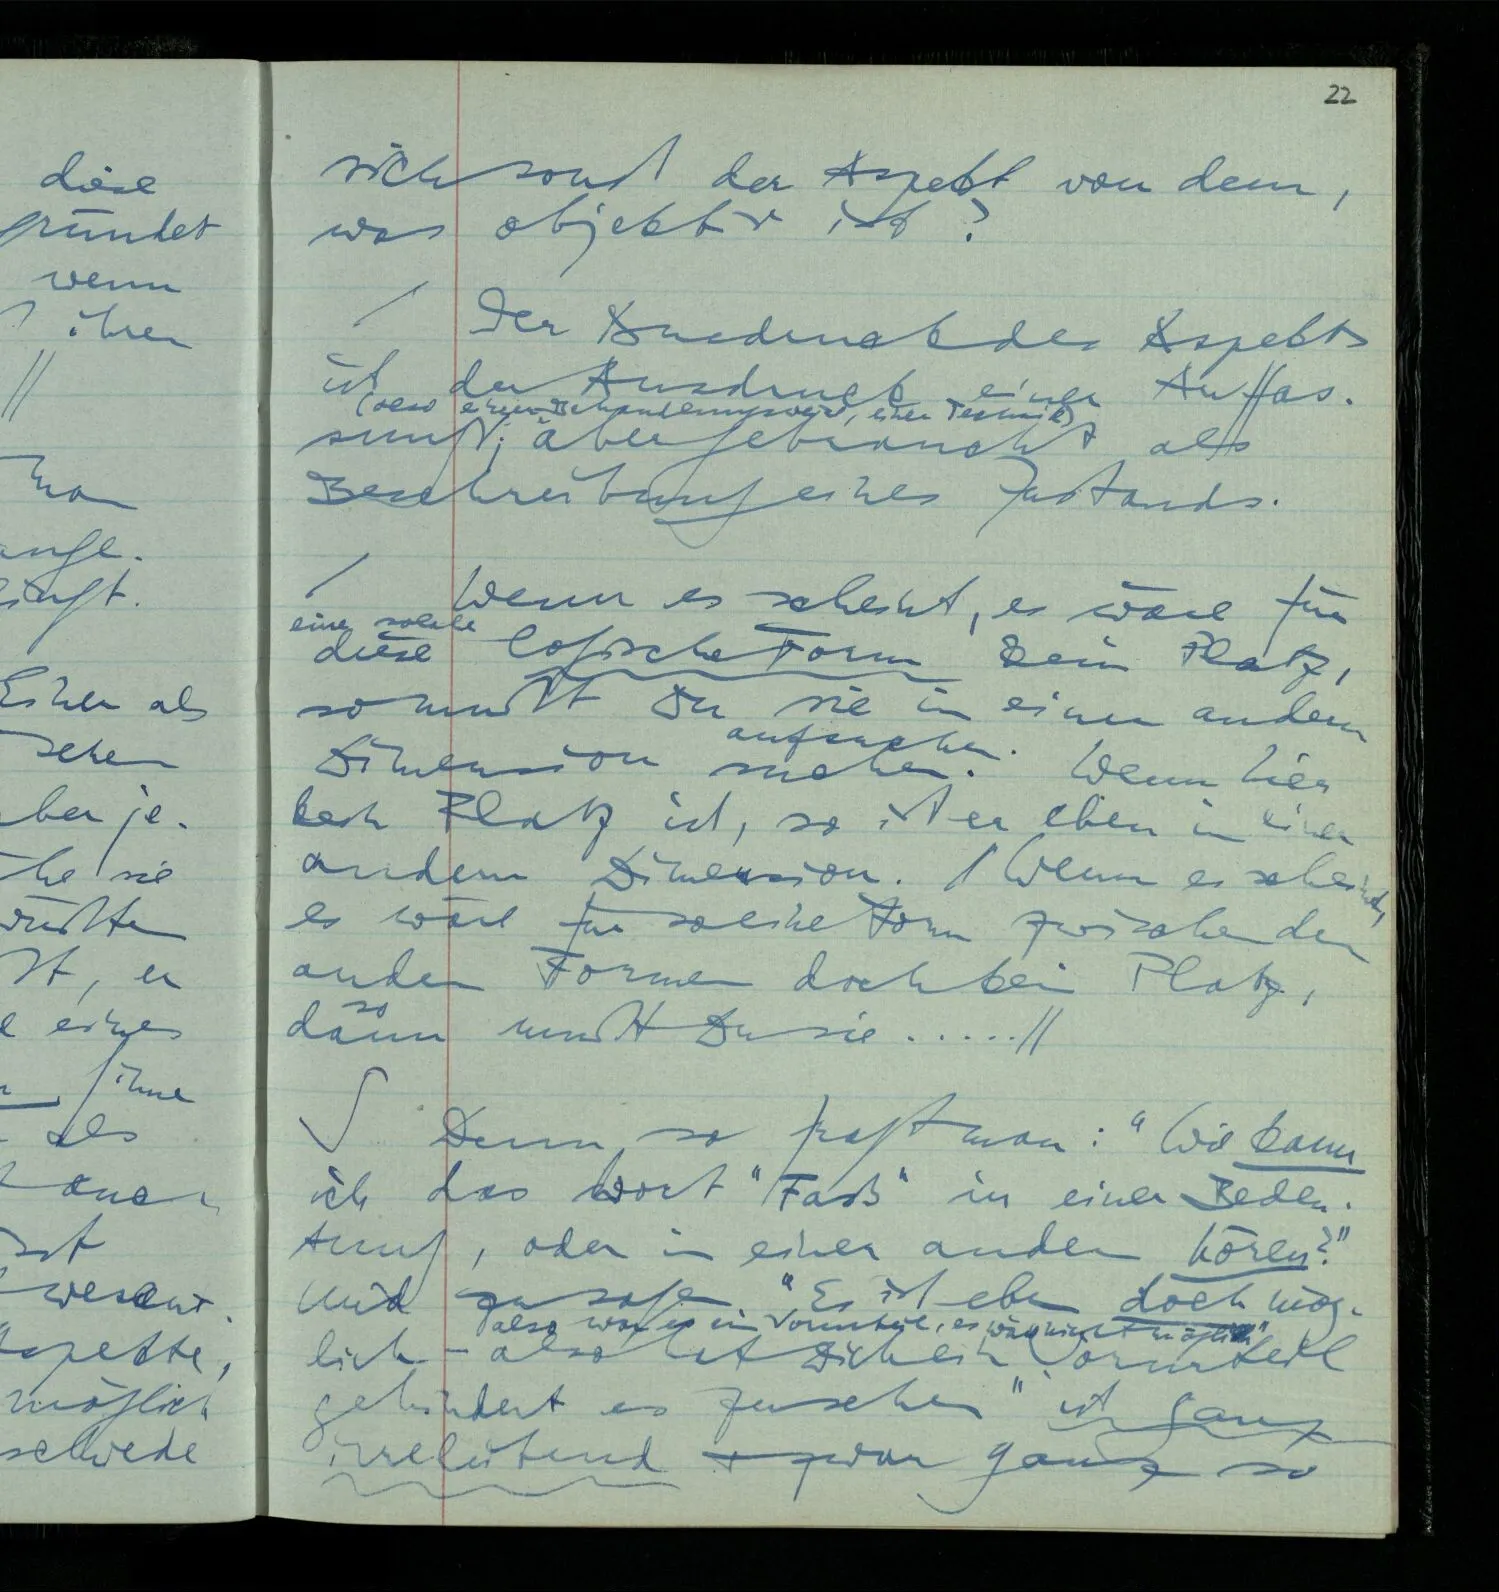 22
diese
gründet
wenn
ihren
//
man
ange.
Einen als
sehen
aber je-
sie
wüßte
er
eines
ihne
als
wesent-
Aspekte,
möglich
sich sonst der Aspekt von dem,
was objektiv ist?
/ Der Ausdruck des Aspekts
ist der Ausdruck einer Auffas-
(also einer Behandlungsweise, einer Technik)
sung; aber gebraucht als
Beschreibung eines Zustands.
/ Wenn es scheint, es wäre für
eine solche
diese logische Form kein Platz,
so mußt Du sie in einer andern
aufsuchen.
Dimension suchen. Wenn hier
kein Platz ist, so ist er eben in einer
andern Dimension. / Wenn es scheint,
es wäre für solche Form zwischen den
andern Formen doch kein Platz,
so
dann mußt Du sie .....//
∫ Denn so fragt man: "Wie kann
ich das Wort "Faß" in einer Bedeu-
tung, oder in einer andern hören?"
Und zu sagen "Es ist eben doch mög-
also war es ein Vorurteil, es wäre nicht möglich"
lich – also hat Dich ein Vorurteil
gehindert es zu sehen" ist ganz
irreleitend & zwar ganz so